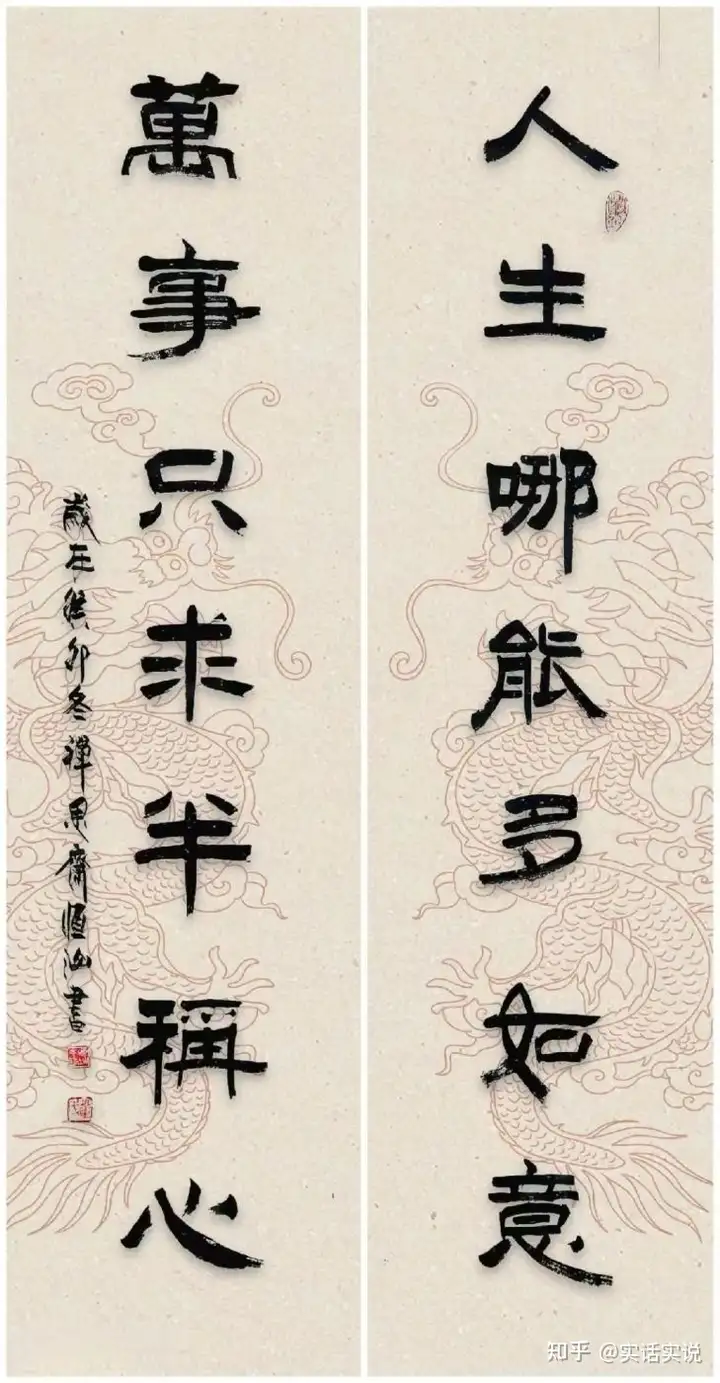 人生哪能多如意
萬事只求半稱心
歲在癸卯冬禪思齋恒汕書
知乎 @实话实说